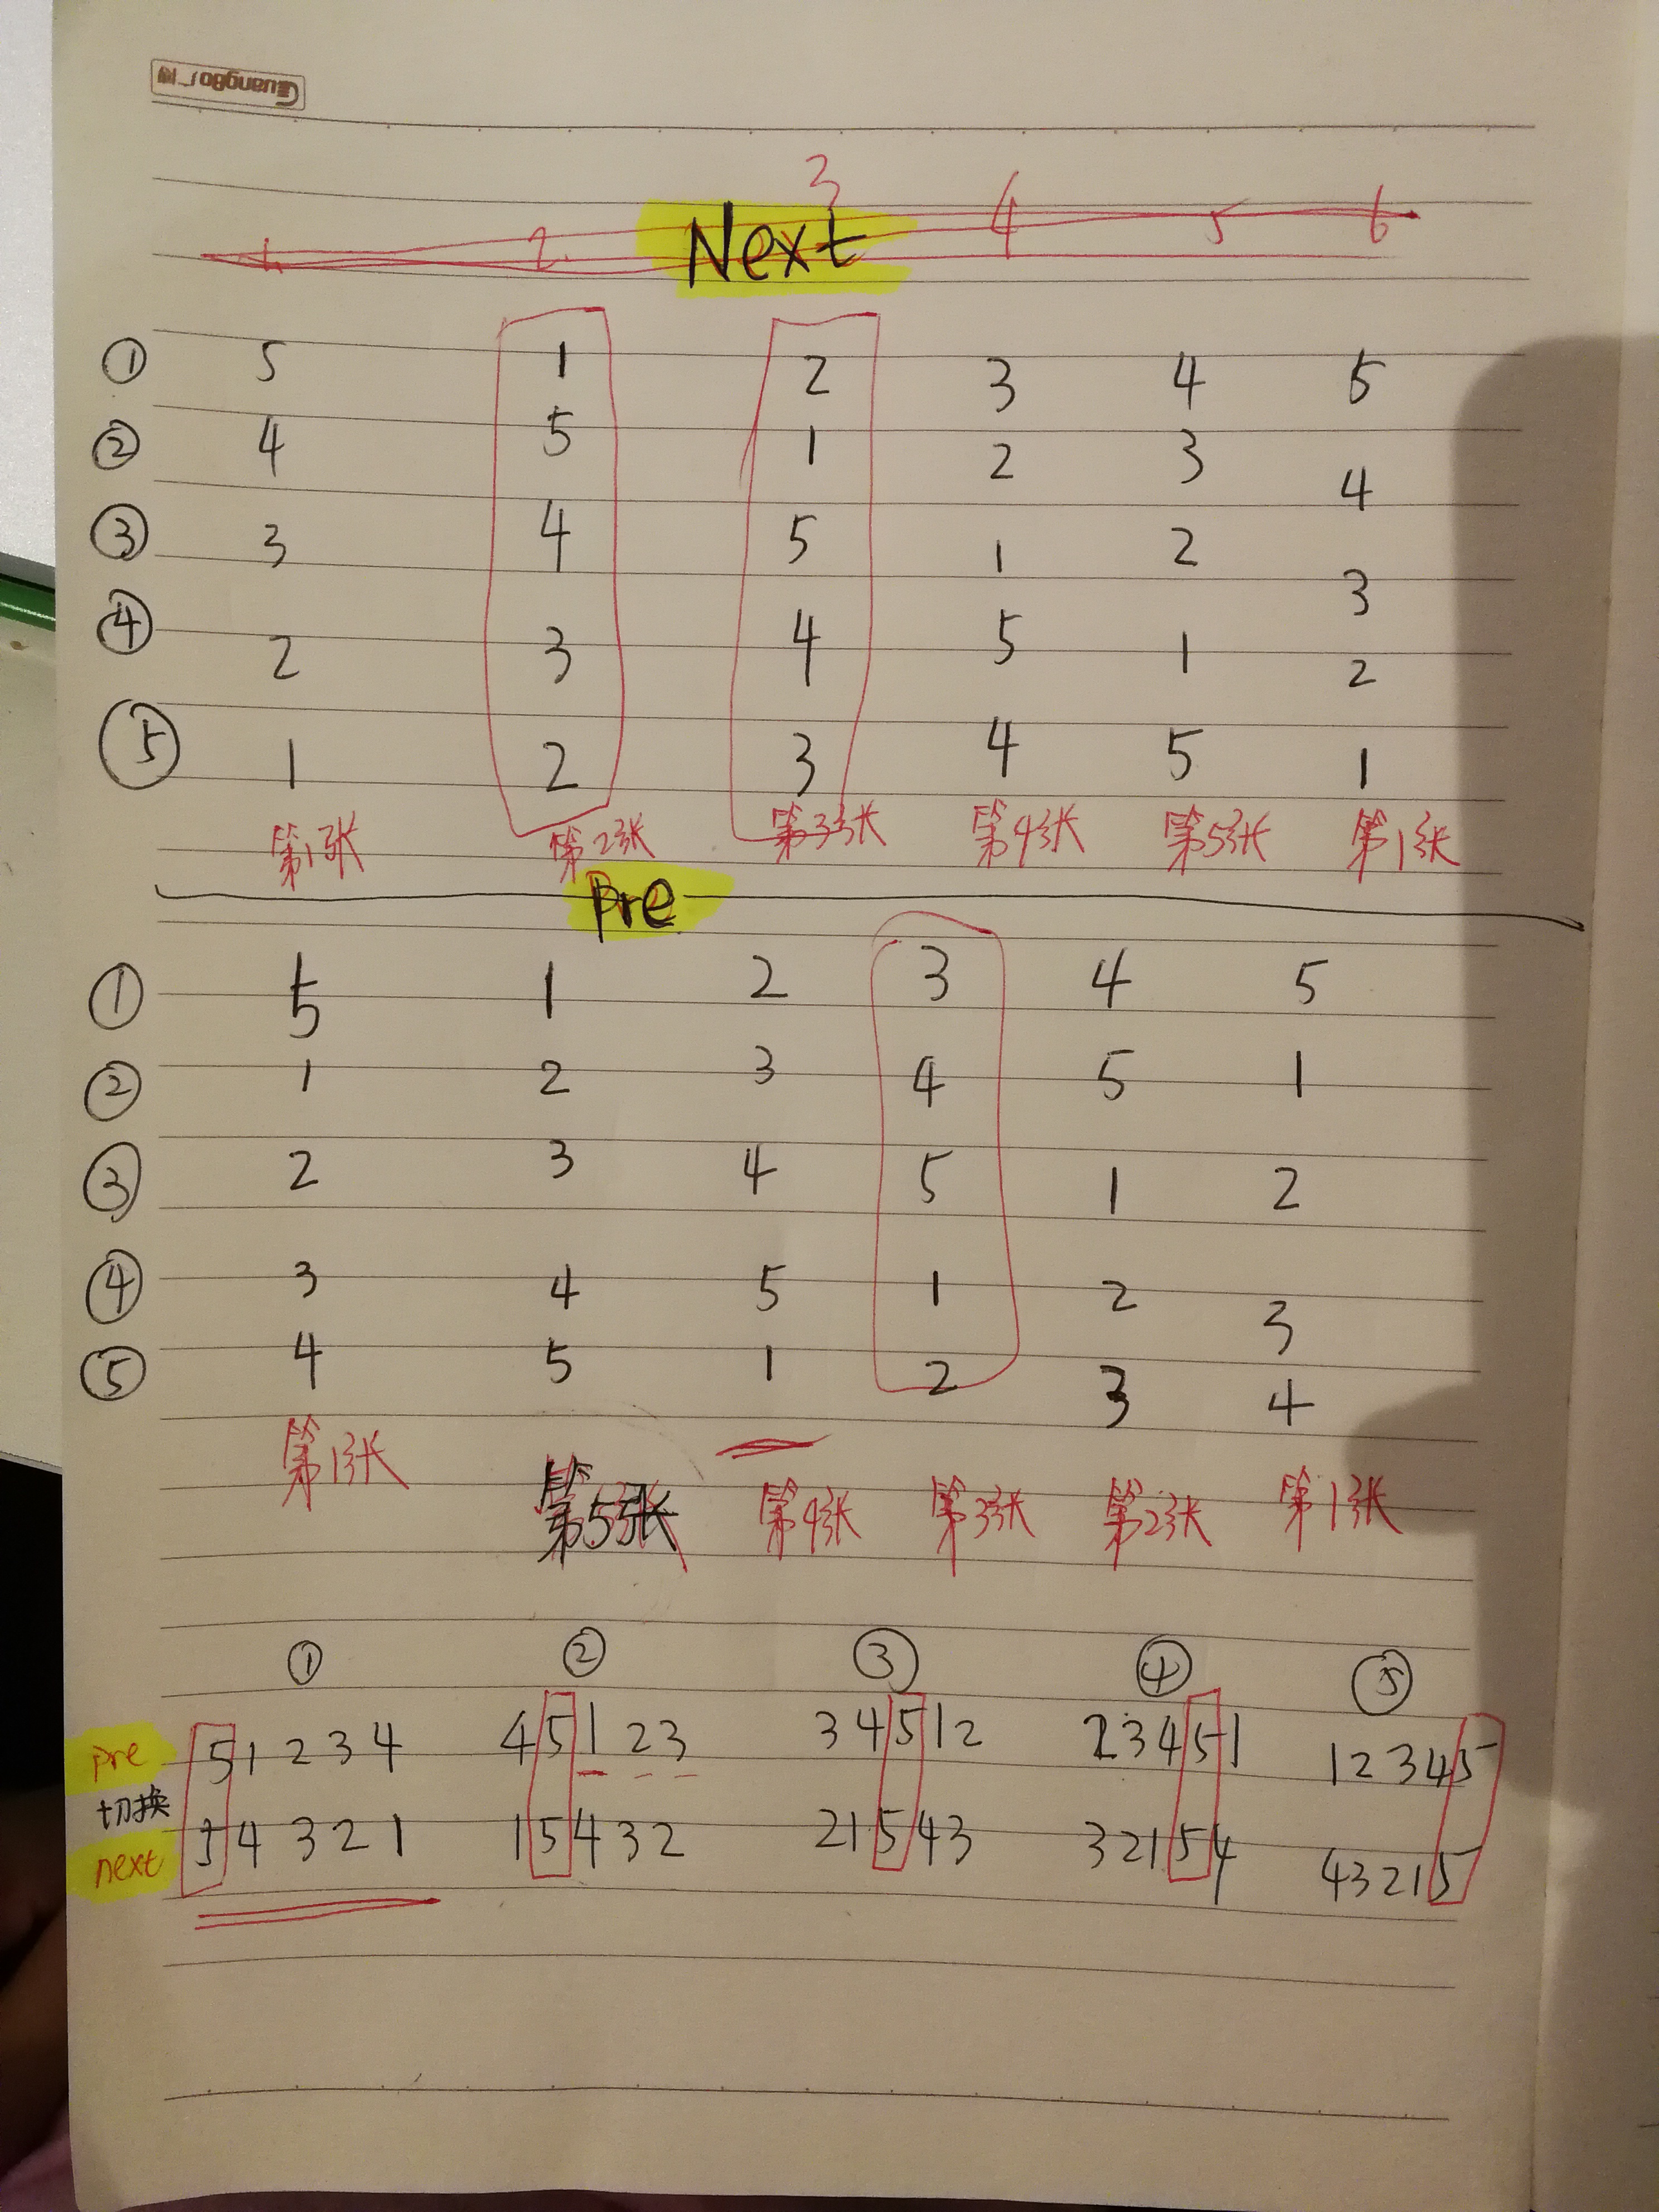 GuangBo广博
3
1 2 Next 4 5 6
① 5 1 2 3 4 5
② 4 5 1 2 3 4
③ 3 4 5 1 2 3
④ 2 3 4 5 1 2
⑤ 1 2 3 4 5 1
第1张 第2张 第3张 第4张 第5张 第1张
pre
① 5 1 2 3 4 5
② 1 2 3 4 5 1
③ 2 3 4 5 1 2
④ 3 4 5 1 2 3
⑤ 4 5 1 2 3 4
第1张 第5张 第4张 第3张 第2张 第1张
① ② ③ ④ ⑤
pre 51234 45123 34512 23451 12345
切换
next 54321 15432 21543 32154 43215